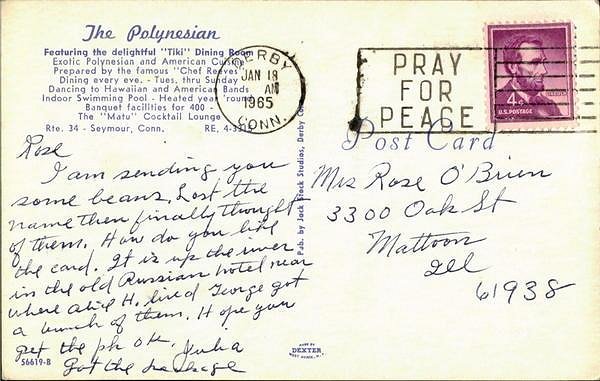 The Polynesian
Featuring the delightful "Tiki" Dining Room
Exotic Polynesian and American Cuisine
Prepared by the famous "Chef Reeves"
Dining every eve. - Tues. thru Sunday
Dancing to Hawaiian and American Bands
Indoor Swimming Pool - Heated year 'round
Banquet facilities for 400 -
The "Matu" Cocktail Lounge
Rte. 34 - Seymour, Conn. RE. 4-33
DERBY
JAN 18
AM
1965
CONN.
PRAY
FOR
PEACE
4¢
U.S. POSTAGE
Post Card
Rose
I am sending you
some beans, Lost the
name then finally thought
of them. How do you like
the card. It is up the river
in the old Russian hotel near
where H. lived George got
a bunch of them. Hope you
get the pk OK. Julia
Got the package
Pub. by Jack Stock Studios, Derby Co
Mrs Rose O'Brien
3300 Oak St
Mattoon
Ill
61938
56619-B
MADE BY
DEXTER